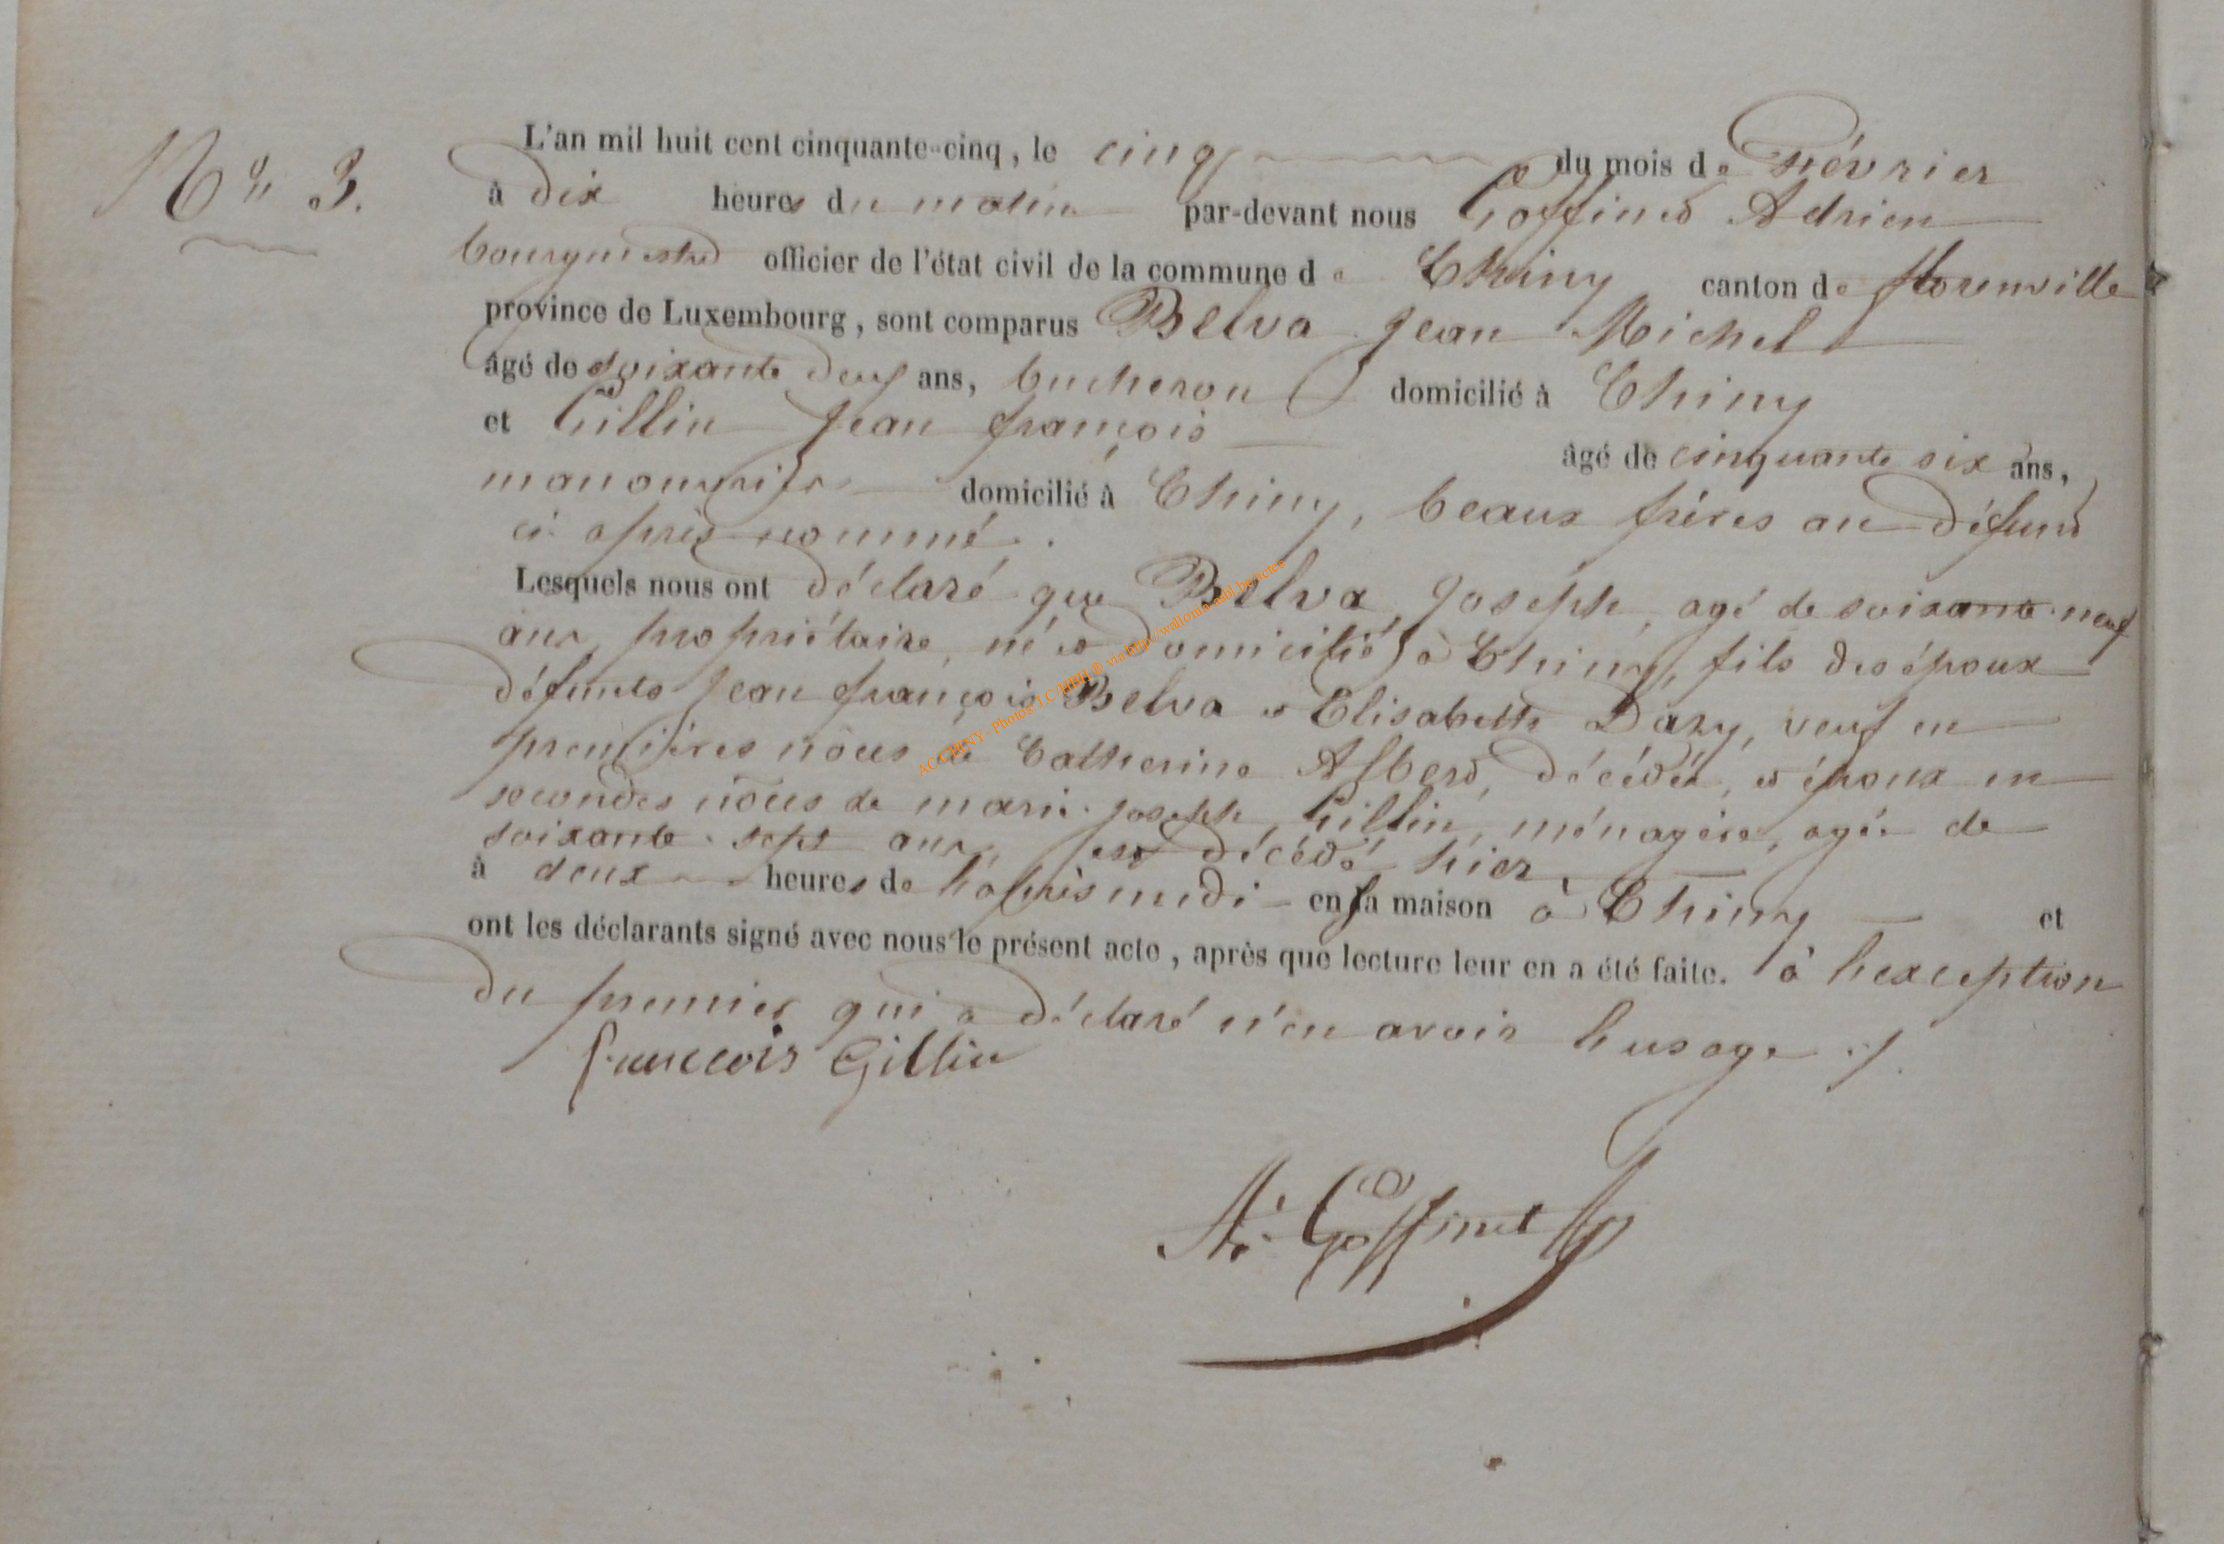 N° 3.
L'an mil huit cent cinquante-cinq, le cinq du mois de Février
à dix heures du matin par-devant nous Goffinet Adrien
bourgmestre officier de l'état civil de la commune de Chiny canton de florenville
province de Luxembourg, sont comparus Belva Jean Michel
âgé de soixante deux ans, bucheron domicilié à Chiny
et Gillin Jean françois âgé de cinquante six ans,
manouvrier domicilié à Chiny, beaux frères au défunt
ci-après nommé.
Lesquels nous ont déclaré que Belva Joseph, agé de soixante-neuf
ans, propriétaire, né et domicilié à Chiny, fils des époux
défunts Jean françois Belva et Elisabeth Dazy, veuf en
premières nôces de Catherine Albert, décédée, et époux en
secondes nôces de marie-joseph Gillin, ménagère, agée de
soixante-sept ans, est décédé hier
à deux heures de l'après midi en sa maison à Chiny et
ont les déclarants signé avec nous le présent acte, après que lecture leur en a été faite. à l'exception
du premier qui a déclaré n'en avoir l'usage ./.
francois Gillin
A. Goffinet
ACCHINY - Photos T.C HHH ® via http://wallonia-asbl.be/actes